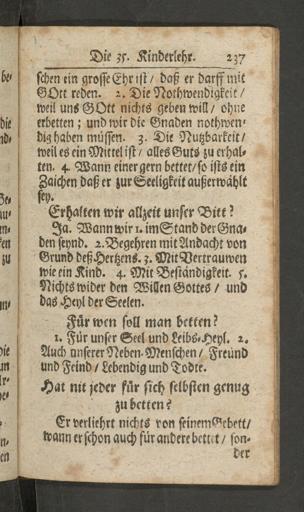 Die 35. Kinderlehr. 237
schen ein grosse Ehr ist / daß er darff mit
GOtt reden. 2. Die Nothwendigkeit /
weil uns GOtt nichts geben will / ohne
erbetten ; und wir die Gnaden nothwen-
dig haben müssen. 3. Die Nutzbarkeit /
weil es ein Mittel ist / alles Guts zu erhal-
ten. 4. Wann einer gern bettet / so ists ein
Zaichen daß er zur Seeligkeit außerwählt
sey.
Erhalten wir allzeit unser Bitt ?
Ja. Wann wir 1. im Stand der Gna-
den seynd. 2. Begehren mit Andacht von
Grund deß Hertzens. 3. Mit Vertrauwen
wie ein Kind. 4. Mit Beständigkeit. 5.
Nichts wider den Willen Gottes / und
das Heyl der Seelen.
Für wen soll man betten ?
1. Für unser Seel und Leibs-Heyl. 2.
Auch unserer Neben-Menschen / Freund
und Feind / Lebendig und Todte.
Hat nit jeder für sich selbsten genug
zu betten ?
Er verliehrt nichts von seinem Gebett /
wann er schon auch für andere bettet / son-
der